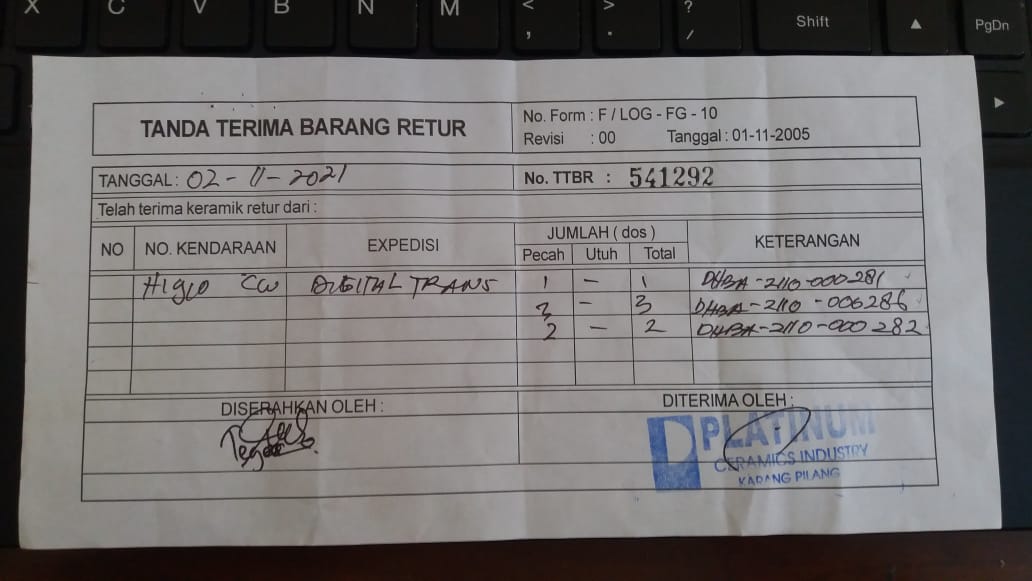 X C V B N M < , > . ? / Shift PgDn
TANDA TERIMA BARANG RETUR
No. Form : F / LOG - FG - 10
Revisi : 00 Tanggal : 01-11-2005
TANGGAL : 02 - 11 - 2021
No. TTBR : 541292
Telah terima keramik retur dari :
NO NO. KENDARAAN EXPEDISI JUMLAH ( dos ) KETERANGAN
Pecah Utuh Total
CW DIGITAL TRANS 1 – 1 DHBA-2110-000281
3 – 3 DHBA-2110-000286
2 – 2 DHBA-2110-000282
DISERAHKAN OLEH : DITERIMA OLEH :
PLATINUM
CERAMICS INDUSTRY
KARANG PILANG